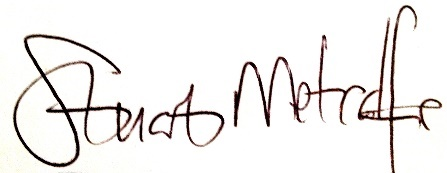 Stuart Metcalfe